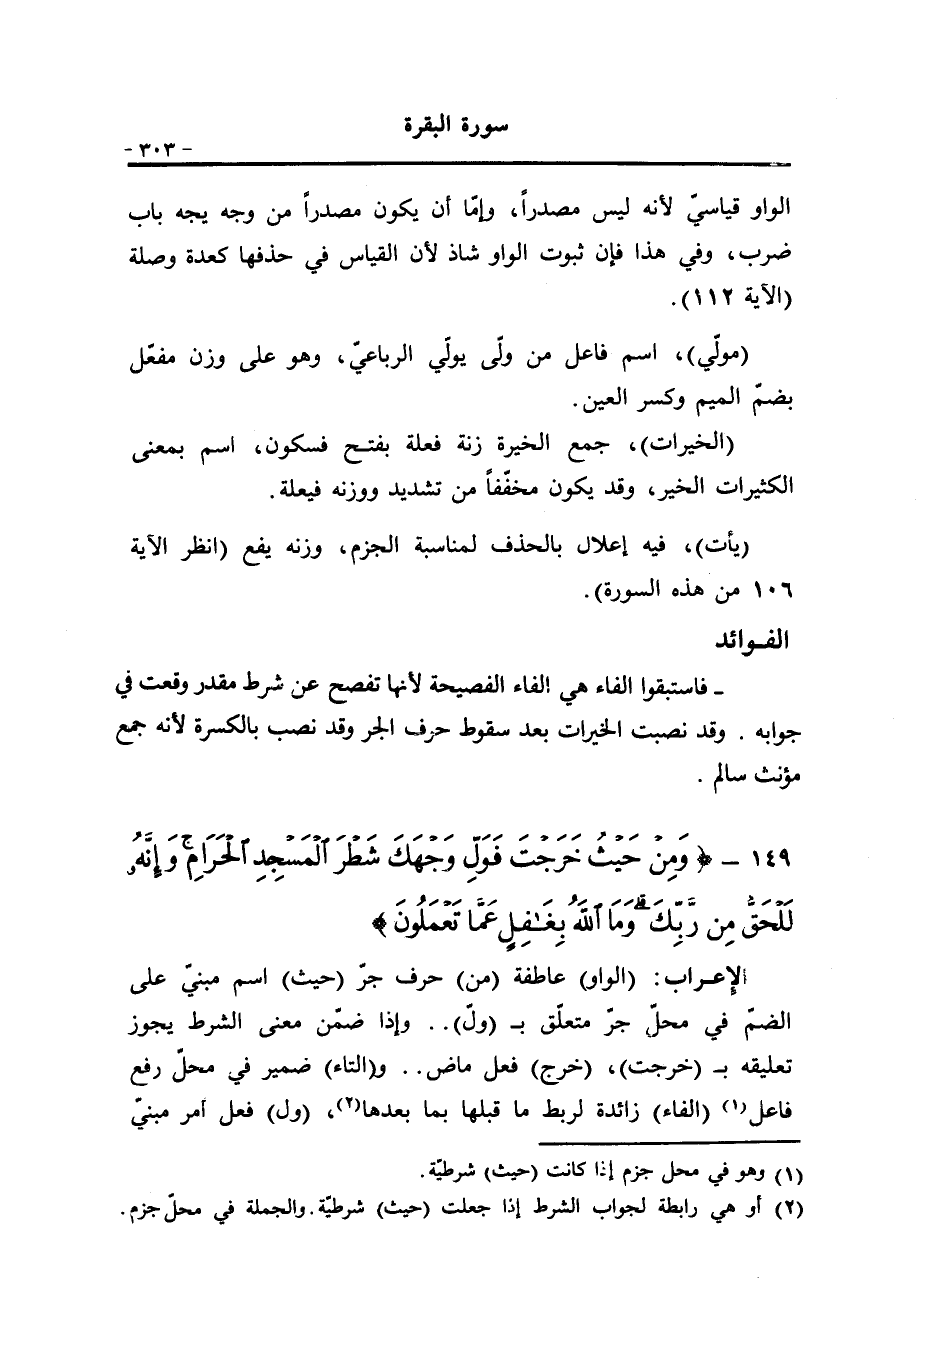 سورة البقرة
- ٣٠٣ -
الواو قياسيّ لأنه ليس مصدراً، وإمّا أن يكون مصدراً من وجه يجه باب
ضرب، وفي هذا فإن ثبوت الواو شاذ لأن القياس في حذفها كعدة وصلة
(الآية ١١٢).
(مولّي)، اسم فاعل من ولّى يولّي الرباعيّ، وهو على وزن مفعّل
بضمّ الميم وكسر العين.
(الخيرات)، جمع الخيرة زنة فعلة بفتح فسكون، اسم بمعنى
الكثيرات الخير، وقد يكون مخفّفاً من تشديد ووزنه فيعلة.
(يأت)، فيه إعلال بالحذف لمناسبة الجزم، وزنه يفع (انظر الآية
١٠٦ من هذه السورة).
الفـوائد
ـ فاستبقوا الفاء هي الفاء الفصيحة لأنها تفصح عن شرط مقدر وقعت في
جوابه . وقد نصبت الخيرات بعد سقوط حرف الجر وقد نصب بالكسرة لأنه جمع
مؤنث سالم .
١٤٩ ـ ﴿ وَمِنْ حَيْثُ خَرَجْتَ فَوَلِّ وَجْهَكَ شَطْرَ ٱلْمَسْجِدِ ٱلْحَرَامِ ۚ وَإِنَّهُۥ
لَلْحَقُّ مِن رَّبِّكَ ۗ وَمَا ٱللَّهُ بِغَـٰفِلٍ عَمَّا تَعْمَلُونَ ﴾
الإعـراب: (الواو) عاطفة (من) حرف جرّ (حيث) اسم مبنيّ على
الضمّ في محلّ جرّ متعلّق بـ (ولّ).. وإذا ضمّن معنى الشرط يجوز
تعليقه بـ (خرجت)، (خرج) فعل ماض.. و(التاء) ضمير في محلّ رفع
فاعل(١) (الفاء) زائدة لربط ما قبلها بما بعدها(٢)، (ول) فعل أمر مبنيّ
(١) وهو في محل جزم إذا كانت (حيث) شرطيّة.
(٢) أو هي رابطة لجواب الشرط إذا جعلت (حيث) شرطيّة. والجملة في محلّ جزم.